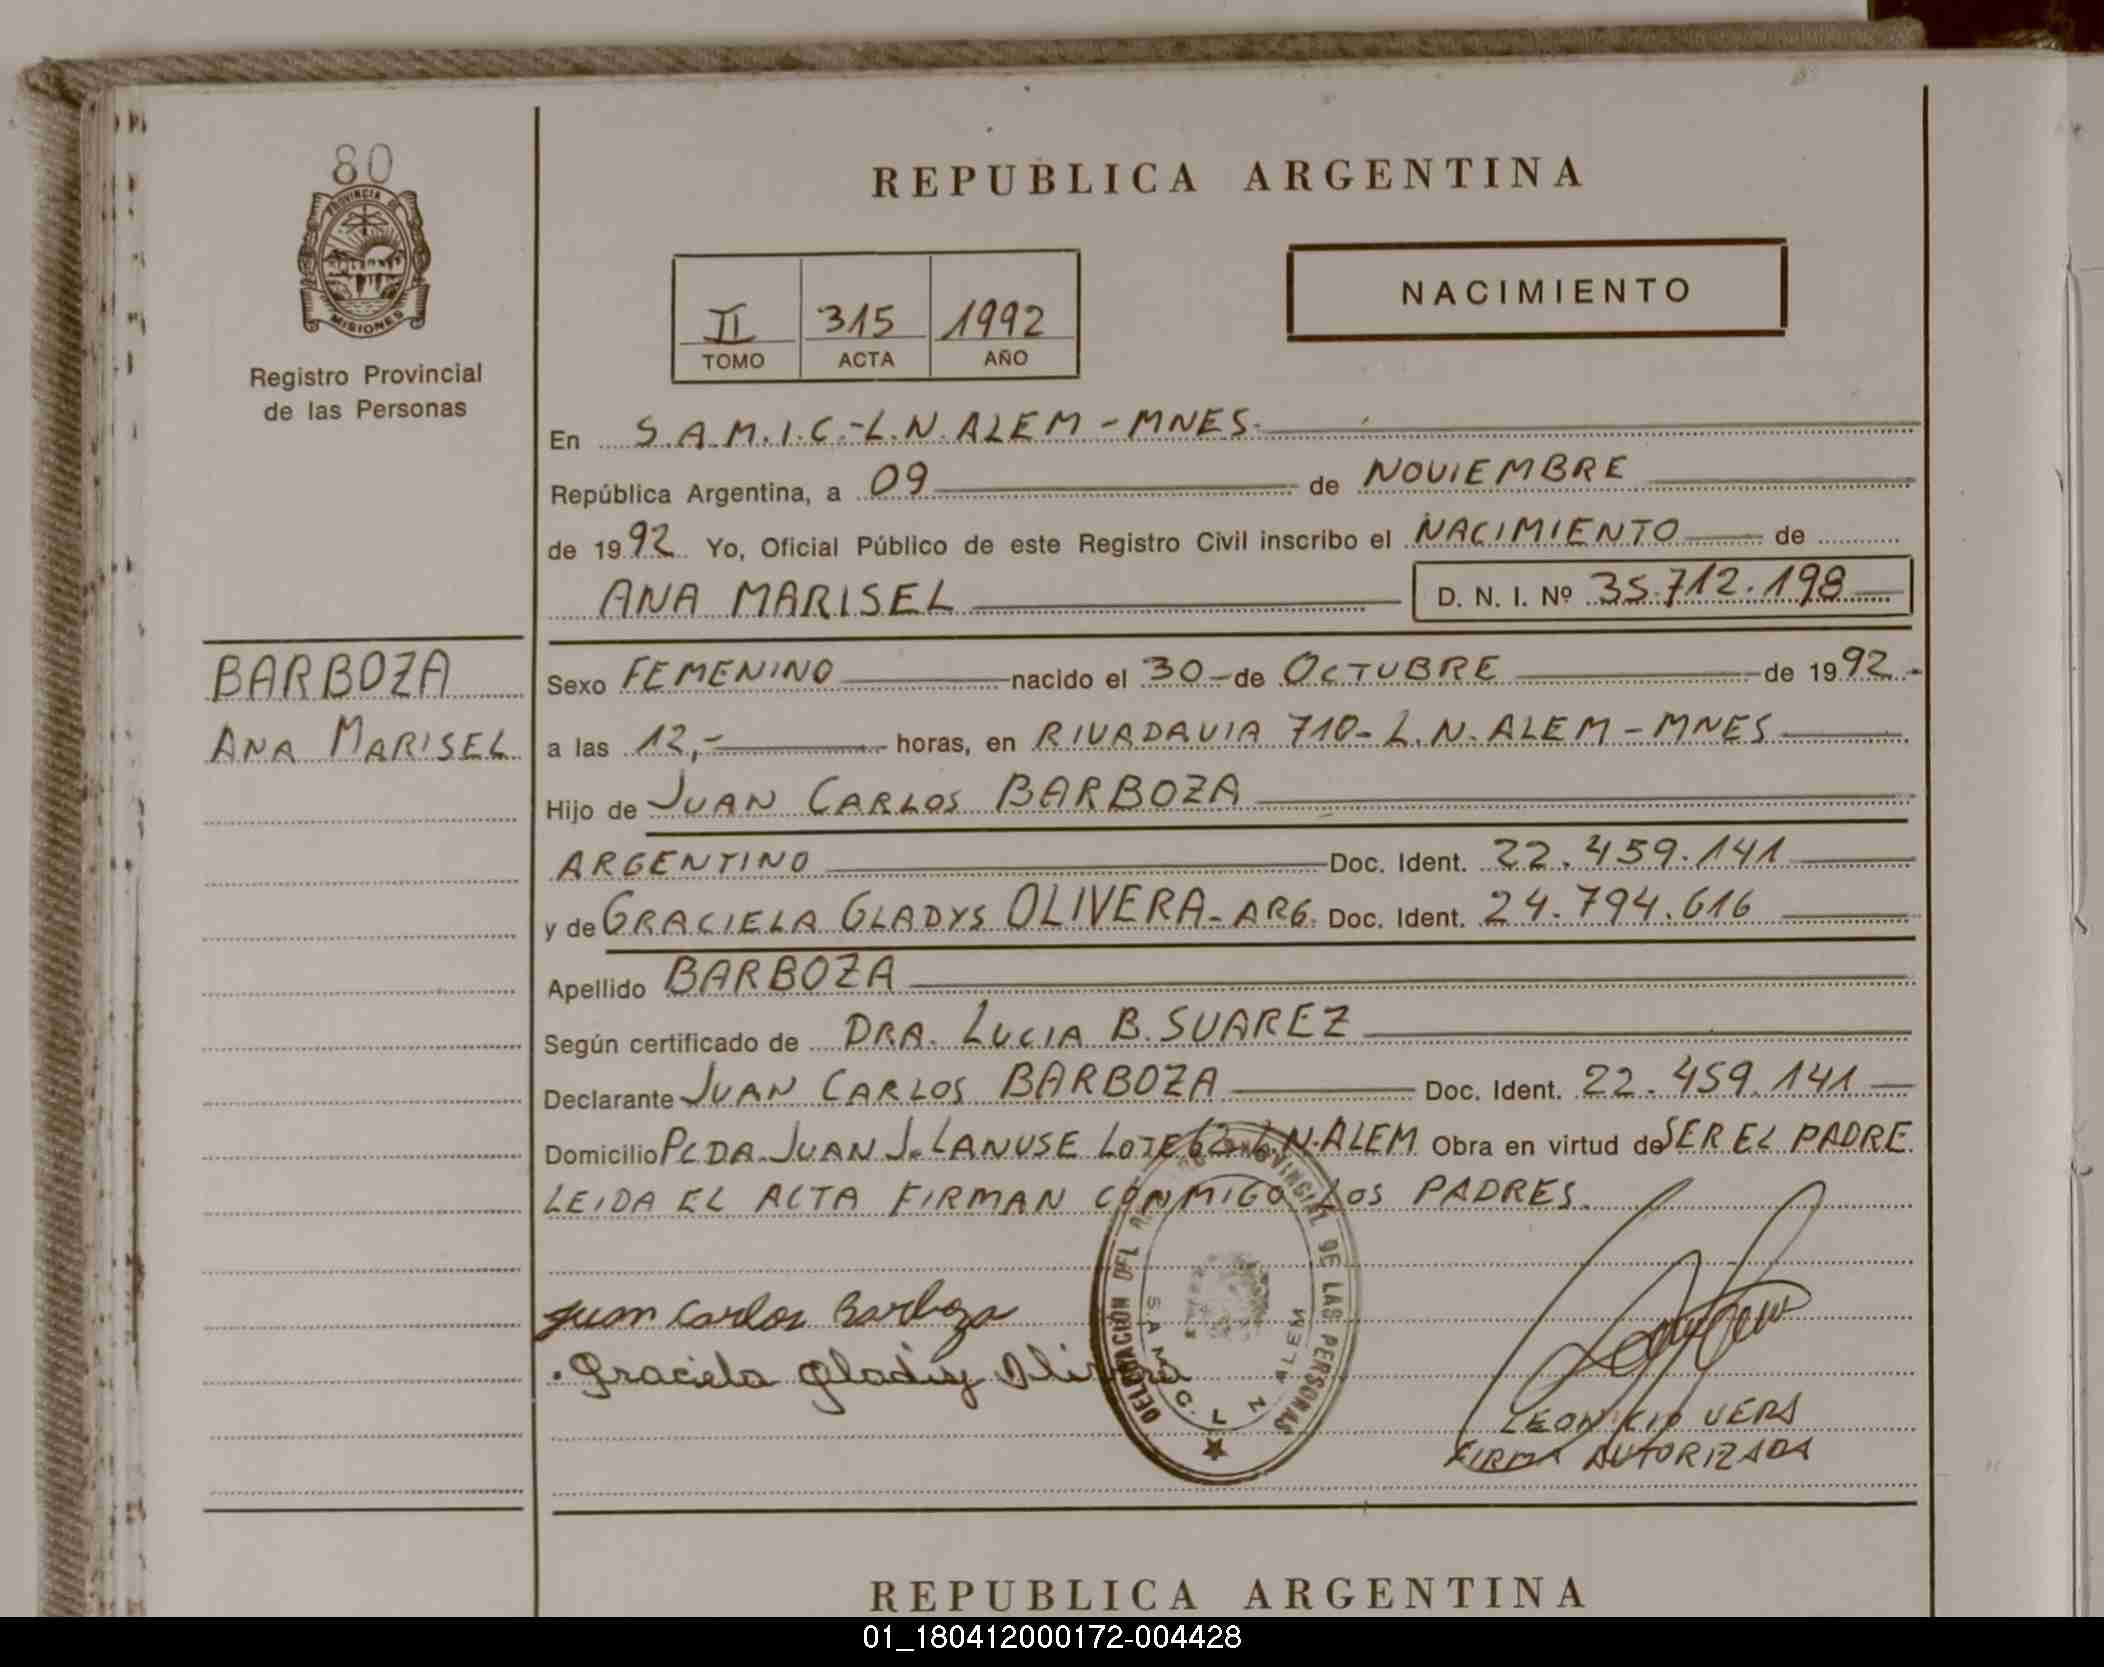 80
PROVINCIA DE
MISIONES
Registro Provincial
de las Personas
BARBOZA
ANA MARISEL
REPUBLICA ARGENTINA
II 315 1992
TOMO ACTA AÑO
NACIMIENTO
En S.A.M.I.C.-L.N.ALEM-MNES.
República Argentina, a 09 de NOVIEMBRE
de 1992 Yo, Oficial Público de este Registro Civil inscribo el NACIMIENTO de
ANA MARISEL D. N. I. Nº 35.712.198
Sexo FEMENINO nacido el 30 de OCTUBRE de 1992.-
a las 12,- horas, en RIVADAVIA 710-L.N.ALEM-MNES
Hijo de JUAN CARLOS BARBOZA
ARGENTINO Doc. Ident. 22.459.141
y de GRACIELA GLADYS OLIVERA-ARG. Doc. Ident. 24.794.616
Apellido BARBOZA
Según certificado de DRA. LUCIA B. SUAREZ
Declarante JUAN CARLOS BARBOZA Doc. Ident. 22.459.141
Domicilio PCDA. JUAN J. LANUSE LOTE 62 L.N.ALEM Obra en virtud de SER EL PADRE.
LEIDA EL ACTA FIRMAN CONMIGO LOS PADRES.
Juan Carlos Barboza
Graciela Gladiy Olivera
DELEGACIÓN DEL PROVINCIAL DE LAS PERSONAS
S.A.M.I.C. L N ALEM
LEONICIO VERA
FIRMA AUTORIZADA
REPUBLICA ARGENTINA
01_180412000172-004428